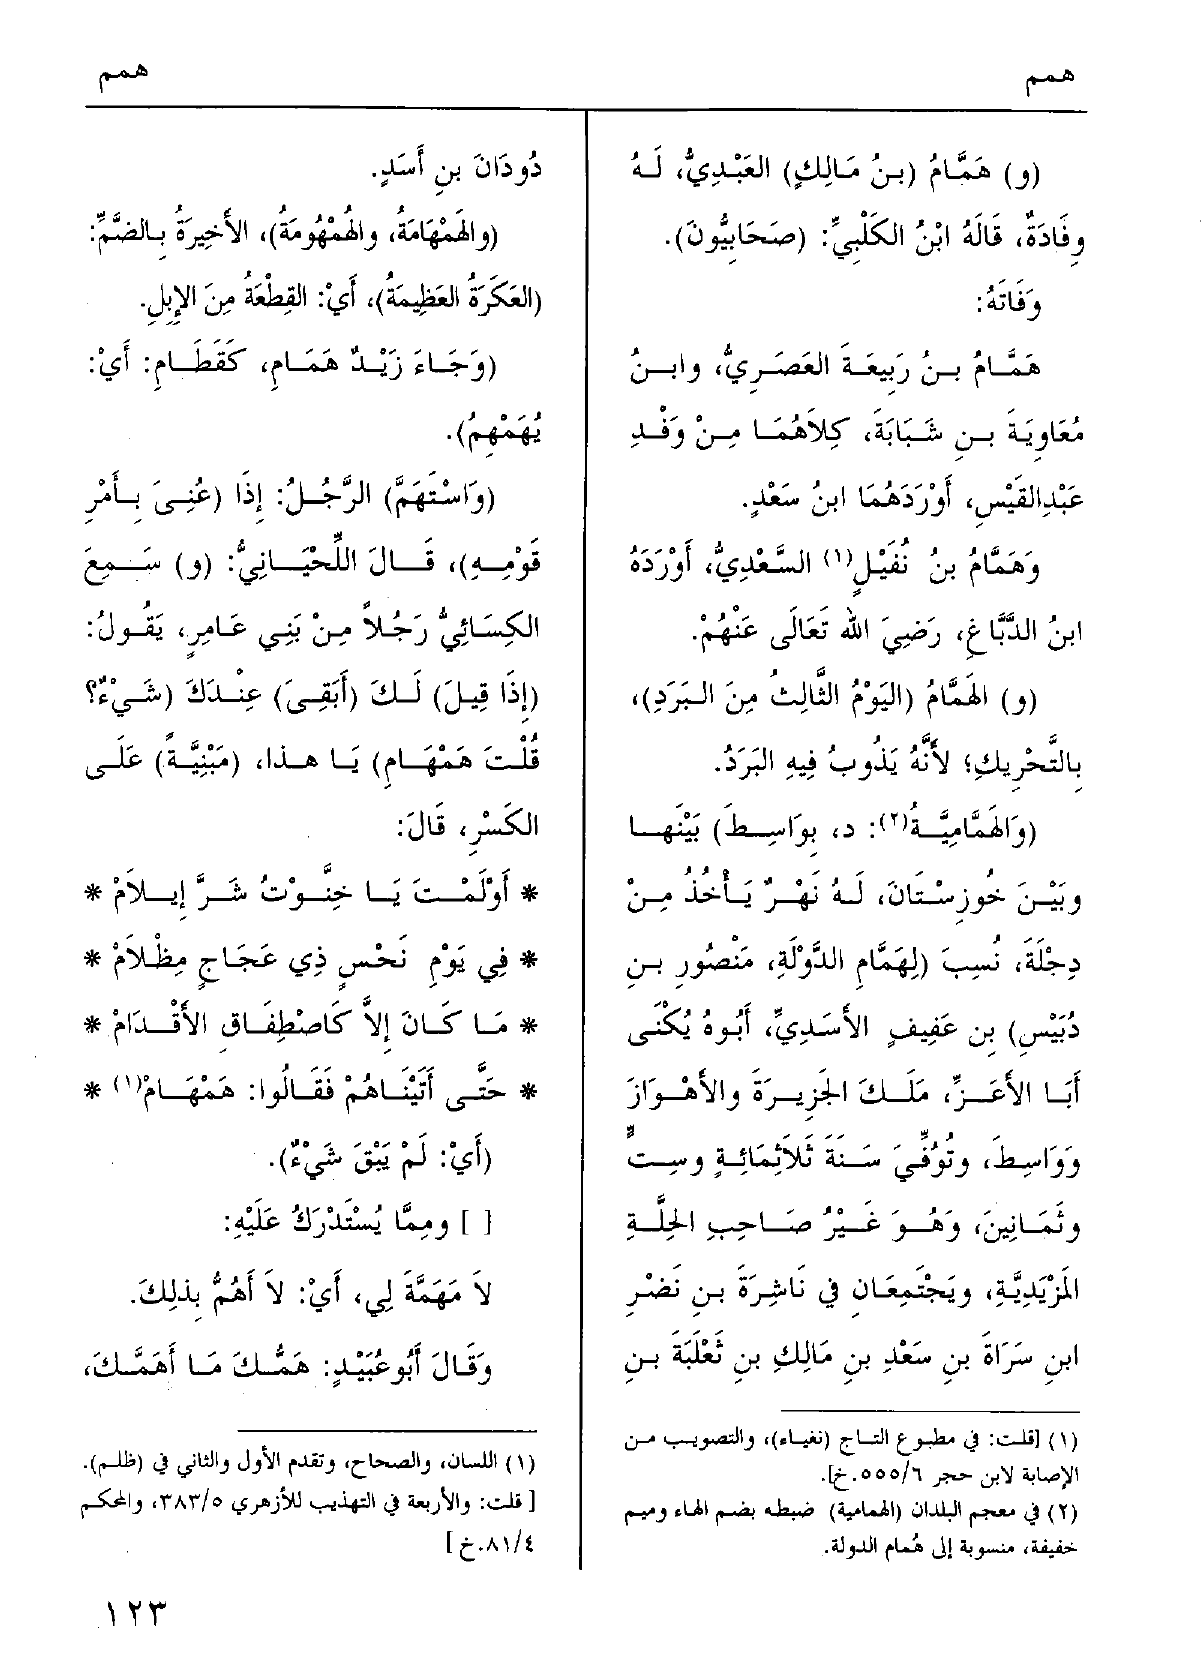 همم
همم
(و) هَمَّامُ (بنُ مَالِكٍ) العَبْدِيُّ، لَهُ
وِفَادَةٌ، قَالَهُ ابْنُ الكَلْبِيِّ: (صَحَابِيُّونَ).
وَفَاتَهُ:
هَمَّامُ بنُ رَبِيعَةَ العَصَرِيُّ، وابنُ
مُعَاوِيَةَ بنِ شَبَابَةَ، كِلاَهُمَا مِنْ وَفْدِ
عَبْدِالقَيْسِ، أَوْرَدَهُمَا ابنُ سَعْدٍ.
وَهَمَّامُ بنُ نُفَيْلٍ(١) السَّعْدِيُّ، أَوْرَدَهُ
ابنُ الدَّبَّاغِ، رَضِيَ الله تَعَالَى عَنْهُمْ.
(و) الهَمَّامُ (اليَوْمُ الثَّالِثُ مِنَ البَرَدِ)،
بِالتَّحْرِيكِ؛ لأَنَّهُ يَذُوبُ فِيهِ البَرَدُ.
(وَالهَمَّامِيَّةُ(٢): د، بِوَاسِطَ) بَيْنَها
وبَيْنَ خُوزِسْتَانَ، لَهُ نَهْرٌ يَأْخُذُ مِنْ
دِجْلَةَ، نُسِبَ (لِهَمَّامِ الدَّوْلَةِ، مَنْصُورِ بنِ
دُبَيْسِ) بن عَفِيفٍ الأَسَدِيِّ، أَبُوهُ يُكْنَى
أَبَا الأَعَزِّ، مَلَكَ الجَزِيرَةَ والأَهْوَازَ
وَوَاسِطَ، وتُوُفِّيَ سَنَةَ ثَلاَثِمَائِةٍ وسِتٍّ
وثَمَانِينَ، وَهُوَ غَيْرُ صَاحِبِ الحِلَّةِ
المَزْيَدِيَّةِ، ويَجْتَمِعَان فِي نَاشِرَةَ بنِ نَصْرِ
ابنِ سَرَاةَ بنِ سَعْدِ بنِ مَالِكِ بنِ ثَعْلَبَةَ بنِ
(١) [قلت: في مطبوع التاج (نغياء)، والتصويب من
الإصابة لابن حجر ٥٥٥/٦.خ].
(٢) في معجم البلدان (الهمامية) ضبطه بضم الهاء وميم
خفيفة، منسوبة إلى هُمام الدولة.
دُودَانَ بنِ أَسَدٍ.
(والهَمْهَامَةُ، والهُمْهُومَةُ)، الأَخِيرَةُ بِالضَّمِّ:
(العَكَرَةُ العَظِيمَةُ)، أَيْ: القِطْعَةُ مِنَ الإِبِلِ.
(وَجَاءَ زَيْدٌ هَمَامِ، كَقَطَامِ: أَيْ:
يُهَمْهِمُ).
(وَاسْتَهَمَّ) الرَّجُلُ: إِذَا (عُنِيَ بِأَمْرِ
قَوْمِهِ)، قَالَ اللِّحْيَانِيُّ: (و) سَمِعَ
الكِسَائِيُّ رَجُلاً مِنْ بَنِي عَامِرٍ، يَقُولُ:
(إِذَا قِيلَ) لَكَ (أَبَقِيَ) عِنْدَكَ (شَيْءٌ؟
قُلْتَ هَمْهَامِ) يَا هذا، (مَبْنِيَّةً) عَلَى
الكَسْرِ، قَالَ:
* أَوْلَمْتَ يَا خِنَّوْتُ شَرَّ إِيلاَمْ *
* فِي يَوْمِ نَحْسٍ ذِي عَجَاجٍ مِظْلاَمْ *
* مَا كَانَ إِلاَّ كَاصْطِفَاقِ الأَقْدَامْ *
* حَتَّى أَتَيْنَاهُمْ فَقَالُوا: هَمْهَامْ(١) *
(أَيْ: لَمْ يَبْقَ شَيْءٌ).
[ ] ومِمَّا يُسْتَدْرَكُ عَلَيْهِ:
لاَ مَهَمَّةَ لِي، أَيْ: لاَ أَهُمُّ بِذلِكَ.
وَقَالَ أَبُوعُبَيْدٍ: هَمُّكَ مَا أَهَمَّكَ،
(١) اللسان، والصحاح، وتقدم الأول والثاني في (ظلم).
[ قلت: والأربعة في التهذيب للأزهري ٣٨٣/٥، والمحكم
٨١/٤.خ ]
١٢٣